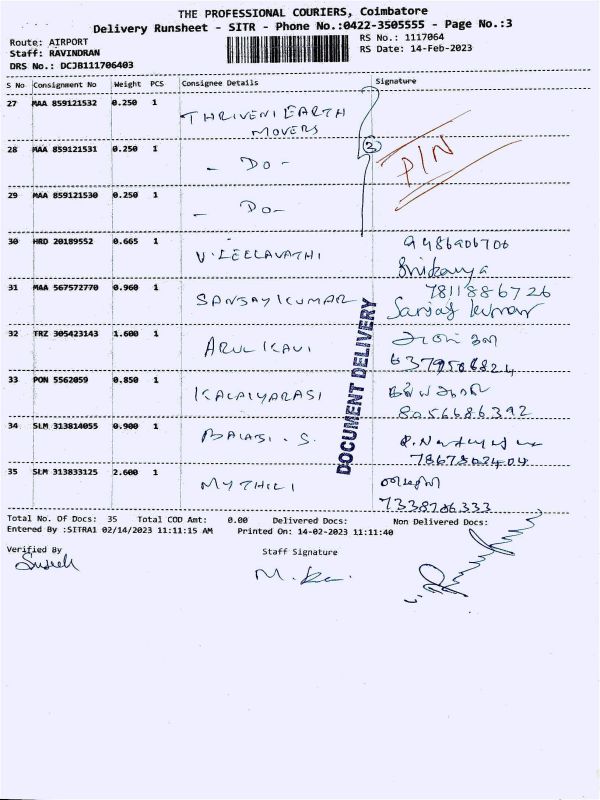 THE PROFESSIONAL COURIERS, Coimbatore
Delivery Runsheet - SITR - Phone No.:0422-3505555 - Page No.:3
Route: AIRPORT
RS No.: 1117064
Staff: RAVINDRAN
RS Date: 14-Feb-2023
DRS No.: DCJB111706403
S No Consignment No Weight PCS Consignee Details Signature
27 MAA 859121532 0.250 1 THRIVENI EARTH
MOVERS
28 MAA 859121531 0.250 1 - DO - (3) PIN
29 MAA 859121530 0.250 1 - DO -
30 HRD 20189552 0.665 1 V. LEELAVATHI 9486906706
31 MAA 567572770 0.960 1 SANJAY KUMAR 7811886726
Sanjay kumar
32 TRZ 305423143 1.600 1 ARUL KAVI
6379506824
33 PON 5562059 0.850 1 KALAIYARASI
8056686392
34 SLM 313814055 0.900 1 BALAJI . S.
35 SLM 313833125 2.600 1 MYTHILI
7338786333
DOCUMENT DELIVERY
Total No. Of Docs: 35 Total COD Amt: 0.00 Delivered Docs: Non Delivered Docs:
Entered By :SITRA1 02/14/2023 11:11:15 AM Printed On: 14-02-2023 11:11:40
Verified By Staff Signature